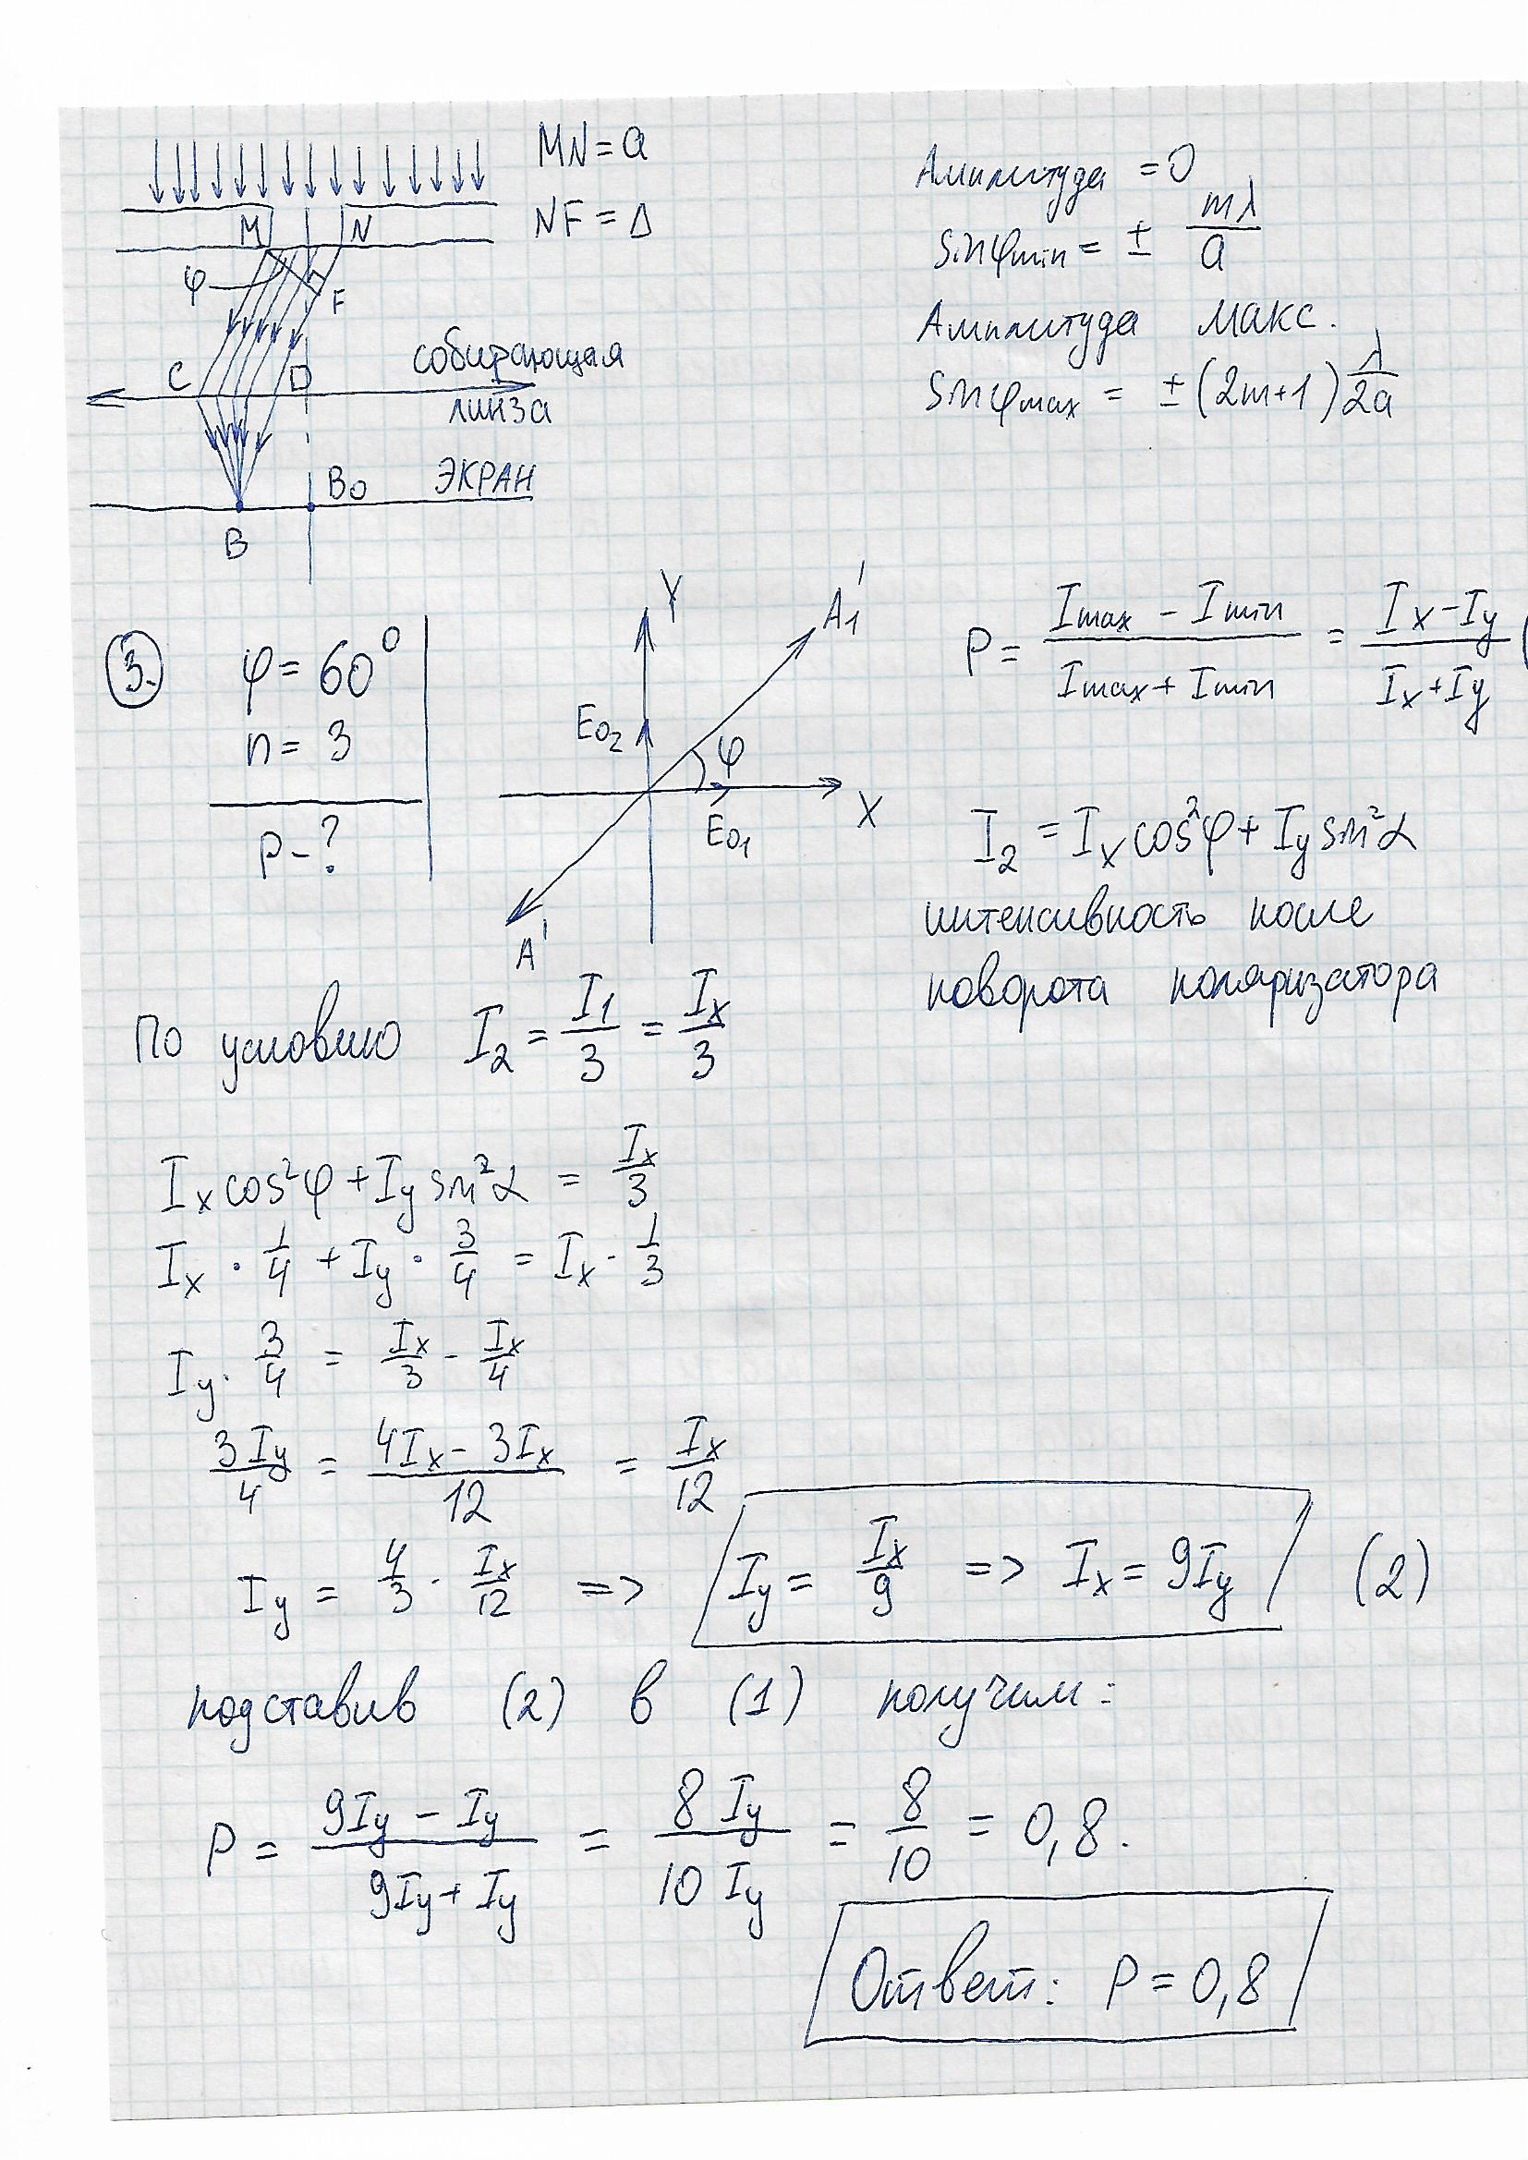 MN = a
NF = Δ
M N
φ
F
C D
собирающая
линза
B₀ ЭКРАН
B
Амплитуда = 0
sinφmin = ± mλ/a
Амплитуда макс.
sinφmax = ±(2m+1) λ/2a
3. φ = 60°
n = 3
P - ?
Y
A₁'
E₀₂
φ
E₀₁
X
A'
P = (Imax - Imin)/(Imax + Imin) = (Ix - Iy)/(Ix + Iy) (
I₂ = Ix cos²φ + Iy sin²α
интенсивность после
поворота поляризатора
По условию I₂ = I₁/3 = Ix/3
Ix cos²φ + Iy sin²α = Ix/3
Ix · 1/4 + Iy · 3/4 = Ix · 1/3
Iy · 3/4 = Ix/3 - Ix/4
3Iy/4 = (4Ix - 3Ix)/12 = Ix/12
Iy = 4/3 · Ix/12 => Iy = Ix/9 => Ix = 9Iy (2)
подставив (2) в (1) получим:
P = (9Iy - Iy)/(9Iy + Iy) = 8Iy/10Iy = 8/10 = 0,8.
Ответ: P = 0,8